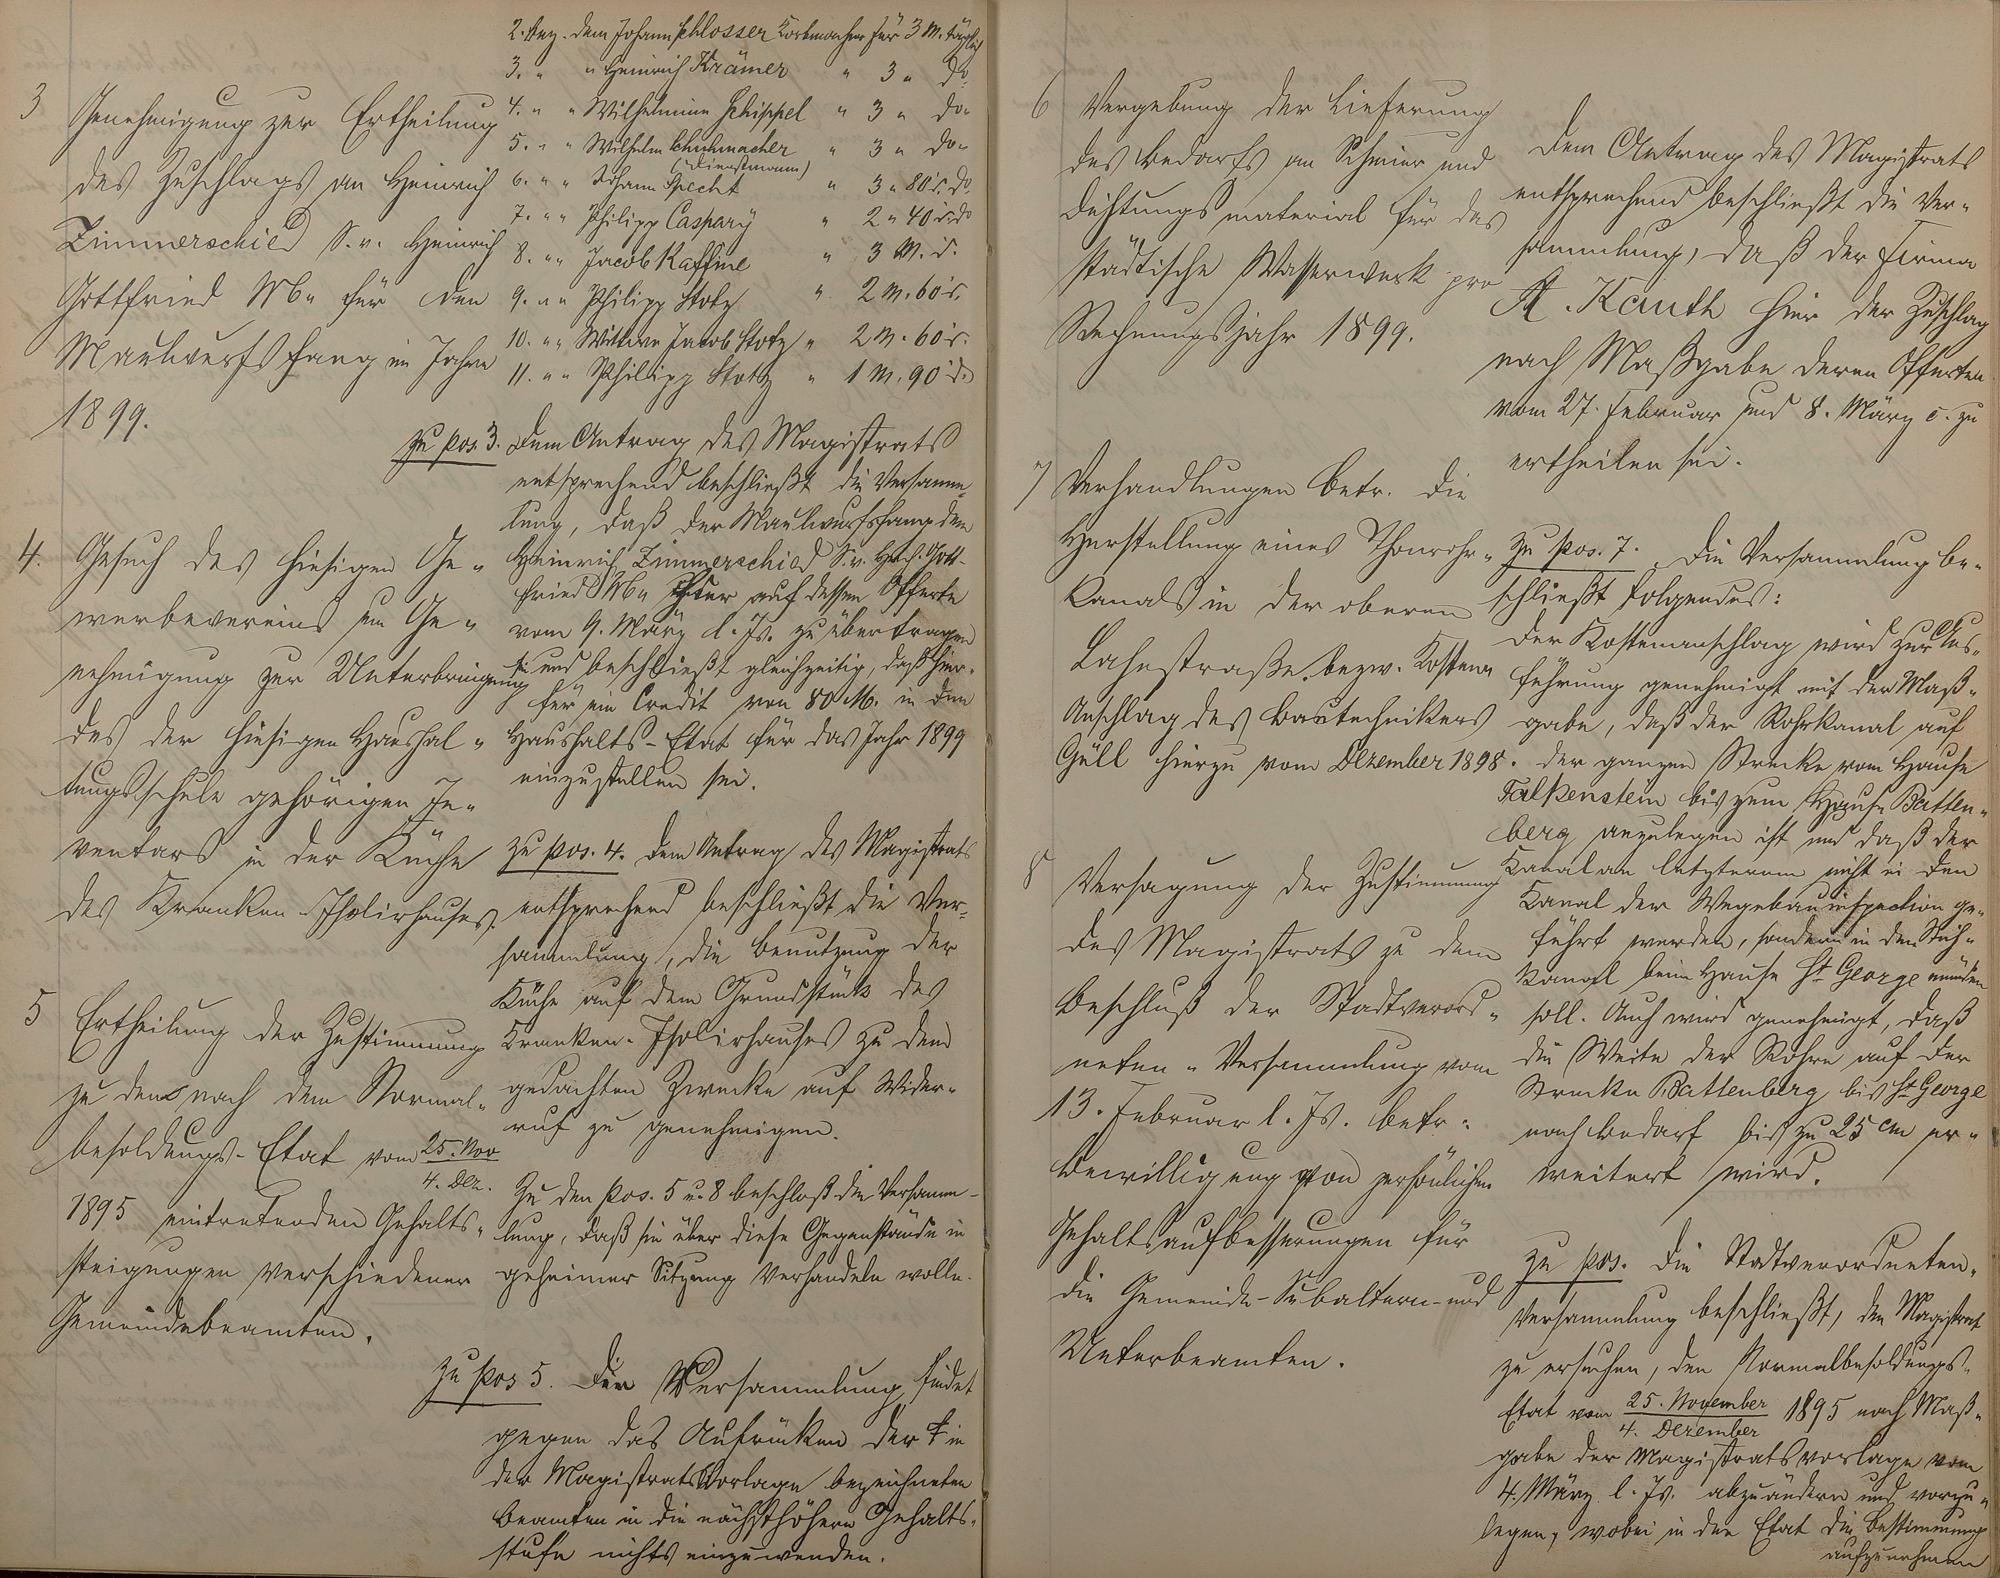 3 Genehmigung zur Ertheilung
des Zuschlags an Heinrich
Zimmerschied S. v. Heinrich
Gottfried Mb. für den
Maulwurfsfang im Jahre
1899.
4. Gesuch des hiesigen Ge-
werbevereins um Ge-
nehmigung zur Unterbringung
des der hiesigen Haushal-
tungsschule gehörigen In-
ventars in der Küche
des Kranken-Isolirhauses.
5 Ertheilung der Zustimmung
zu den nach dem Normal-
besoldungs-Etat vom 25. Nov
4. Dez.
1895 eintretenden Gehalts-
steigungen verschiedener
Gemeindebeamten.
2. Dez. dem Johann Schlosser Korbmacher für 3 M. täglich
3. " " Heinrich Krämer " 3 " do
4. " " Wilhelmine Schippel " 3 " do
5. " " Wilhelm Schuhmacher " 3 " do
(Dienstmann)
6. " " Johann Specht " 3 " 80 d. do.
7. " " Philipp Caspary " 2 " 40 d. do
8. " " Jacob Kaffine " 3 M. d.
9. " " Philipp Stotz " 2 M. 60 d.
10. " " Wittwe Jacob Stotz " 2 M. 60 d.
11. " " Philipp Stotz " 1 M. 90 d.
zu pos. 3. Dem Antrag des Magistrats
entsprechend beschließt die Versamm-
lung, daß der Maulwurfsfang dem
Heinrich Zimmerschied S. v. Hch. Gott-
fried Mb. hier auf dessen Offerte
vom 9. März l. Js. zu übertragen
sei und beschließt gleichzeitig, daß hier-
für ein Credit von 80 M. in den
Haushalts-Etat für das Jahr 1899
einzustellen sei.
zu pos. 4. Dem Antrag des Magistrats
entsprechend beschließt die Ver-
sammlung, die Benutzung der
Küche auf dem Grundstück des
Kranken-Isolirhauses zu dem
gedachten Zwecke auf Wider-
ruf zu genehmigen.
Zu den pos. 5 u. 8 beschloß die Versamm-
lung, daß sie über diese Gegenstände in
geheimer Sitzung verhandeln wolle.
zu pos 5. Die Versammlung findet
gegen das Aufrücken der in
der Magistratsvorlage bezeichneten
Beamten in die nächsthöhere Gehalts-
stufe nichts einzuwenden.
6 Vergebung der Lieferung
des Bedarfs an Schmier und
Dichtungsmaterial für das
städtische Wasserwerk pro
Rechnungsjahr 1899.
7) Verhandlungen betr. die
Herstellung eines Thonrohr-
Kanals in der oberen
Lahnstraße bezw. Kosten
Anschlag des Bautechnikers
Güll hierzu vom Dezember 1898.
8 Versagung der Zustimmung
des Magistrats zu dem
Beschluß der Stadtverord-
neten-Versammlung vom
13. Februar l. Js. betr.
Bewilligung von persönlichen
Gehaltsaufbesserungen für
die Gemeinde-Subaltern- und
Unterbeamten.
Dem Antrag des Magistrats
entsprechend beschließt die Ver-
sammlung, daß der Firma
A. Kauth hier der Zuschlag
nach Maßgabe deren Offerten
vom 27. Februar und 8. März c. zu
ertheilen sei.
zu pos. 7. Die Versammlung be-
schließt folgendes:
Der Kostenanschlag wird zur Aus-
führung genehmigt mit der Maß-
gabe, daß der Rohrkanal auf
der ganzen Strecke vom Hause
Falkenstein bis zum Hause Batten-
berg anzulegen ist und daß der
Kanal an letzterem nicht in den
Kanal der Wegebauinspection ge-
führt werden, sondern in den Stich-
kanal beim Hause St. George münden
soll. Auch wird genehmigt, daß
die Weite der Rohre auf der
Strecke Battenberg bis St. George
nach Bedarf bis zu 25 cm er-
weitert wird.
zu pos. Die Stadtverordneten-
Versammlung beschließt, den Magistrat
zu ersuchen, den Normalbesoldungs-
Etat vom 25. November 1895 nach Maß-
4. Dezember
gabe der Magistratsvorlage vom
4. März l. Js. abzuändern und vorzu-
legen, wobei in den Etat die Bestimmung
aufzunehmen